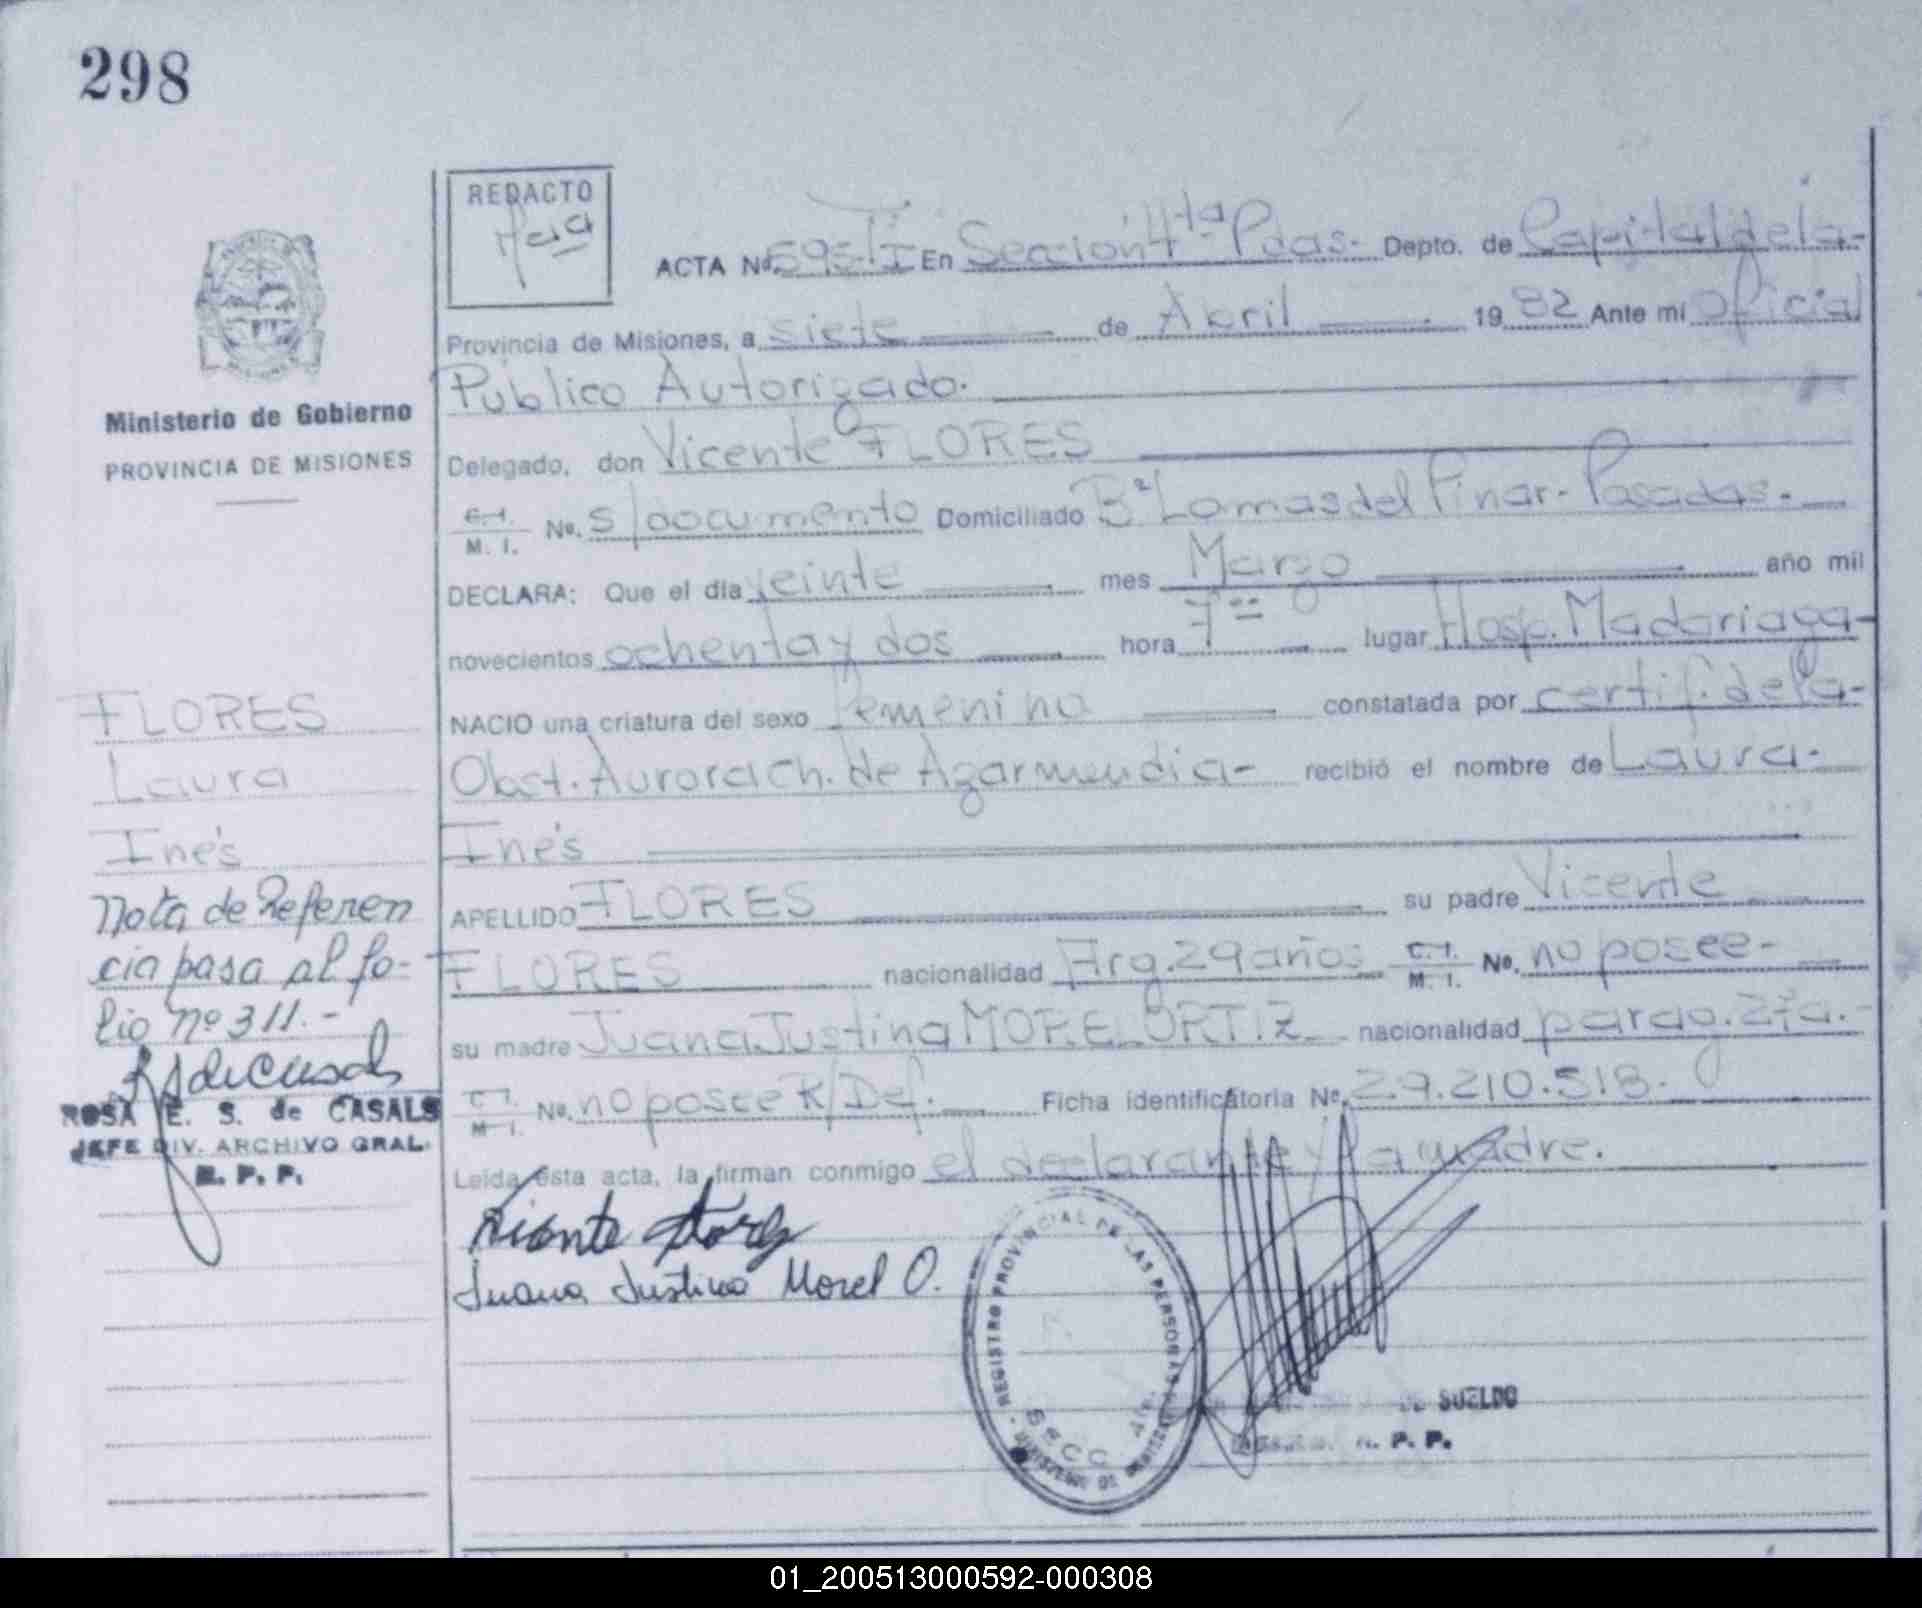 298
REDACTO
ACTA Nº 595-TI En Sección 4ta Pdas. Depto. de Capital de la-
Provincia de Misiones, a siete de Abril 1982 Ante mí Oficial
Público Autorizado.
Ministerio de Gobierno
PROVINCIA DE MISIONES
Delegado, don Vicente FLORES
C.I. M. I. No. s/documento Domiciliado Bº Lomas del Pinar- Posadas.
DECLARA: Que el día veinte mes Marzo año mil
novecientos ochenta y dos hora 7 == lugar Hosp. Madariaga-
NACIO una criatura del sexo femenino constatada por certif. de la-
Obst. Aurora Ch. de Azarmendia- recibió el nombre de Laura-
Inés
APELLIDO FLORES su padre Vicente
FLORES nacionalidad Arg. 29 años C.I. M. I. No. no posee-
su madre Juana Justina MOREL ORTIZ nacionalidad parag. 27a.-
C.I. M. I. No. no posee R/Def. Ficha identificatoria No. 29.210.518.
Leída ésta acta, la firman conmigo el declarante y la madre.
FLORES
Laura
Inés
Nota de Referen
cia pasa al fo-
lio nº 311.-
ROSA E. S. de CASALS
JEFE DIV. ARCHIVO GRAL.
R. P. P.
Vicente Flores
Juana Justina Morel O.
REGISTRO PROVINCIAL DE LAS PERSONAS
MINISTERIO DE GOBIERNO
SECC 4ta.
DE SUELDO
R. P. P.
01_200513000592-000308